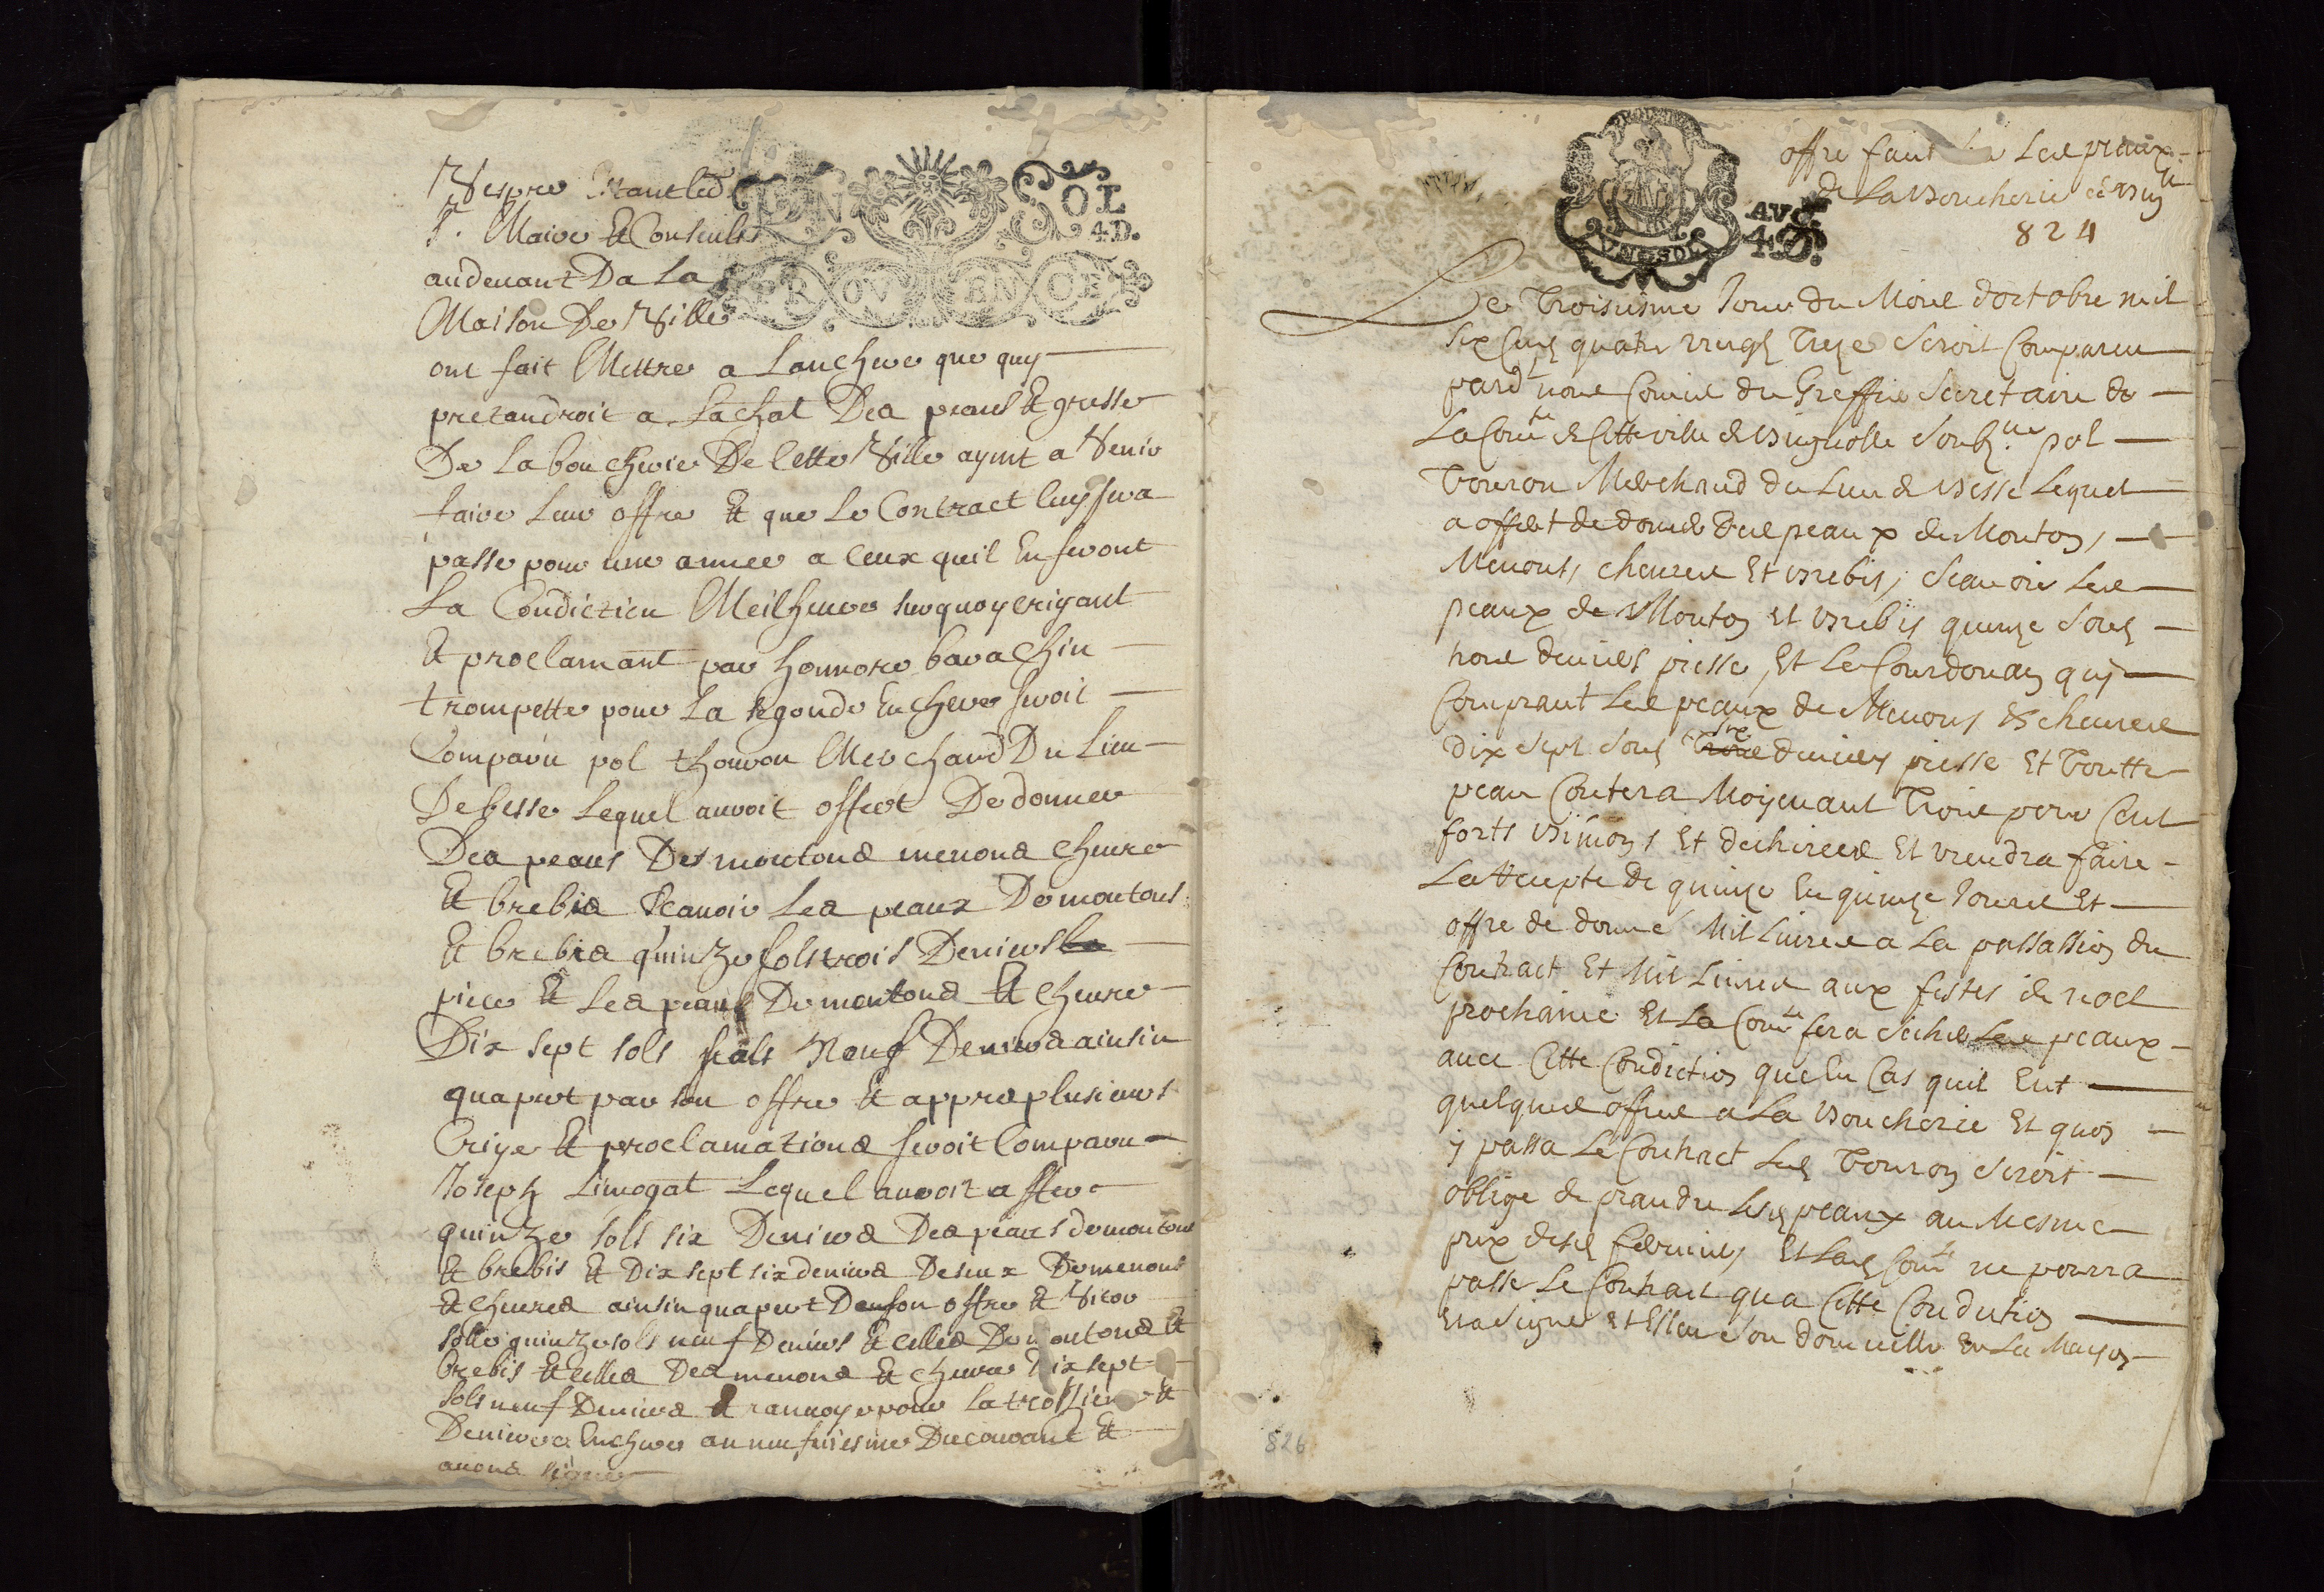 Vespre Estant led
S.r Maire Et Consculs
audevant Da La
Maison De Ville
ont fait Mettre a Lanchere que quy
pretandroit a Lachat Des peaus Et gresse
De La boucherie De Cette Ville aynt a Venir
faire Leur offre Et que Le Contract luy sera
passe pour une annee a Ceux quil En feront
La Condiction Meilheure surquoy criyant
Et proclamant par honnore barachin
trompette pour La segonde Enchere seroit
Comparu pol thouron Merchand Du Lieu
De besse Lequel auroit offert De donner
Des peaus Des moutons menons cheure
Et brebis Scauoir Les peaux De moutons
Et brebis quinze sols trois Deniers la
piece Et Les peaus De moutons Et cheure
Dix sept sols Neuf Deniers ainsin
quapert par son offre Et appres plusieurs
Criye Et proclamations seroit Comparu
Joseph Limogat Lequel auroit offert
quinze sols six Deniers Des peaus de moutons
Et brebis Et Dix sept six deniers De menons
Et cheures ainsin quapert De son offre Et
quinze sols neuf Deniers Et Celles De moutons Et
brebis Et Celles Des menons Et cheure Dix sept
sols neuf Deniers Et ranuoye pour La troisieme Et
Derniere Enchere au neufuiesme Du courant Et
auons signe
UN SOL
4.D.
PROVENCE
offre faut Les peaux
de La Boucherie de Brig.lle
824
PROVENCE
UN SOL
AVG.
4.D.
Le Troisiesme Jour du Mois doctobre mil
six Cens quatre vingts Treze seroit Comparu
pard.t nous Comis du Greffie Secretaire de
La Com.te de Cette ville de Brignolle Soub.ne pol
Touron Merchand du Lieu de Besse Lequel
a offert de donner des peaux de Mouton,
Menons, cheures Et Brebis, scauoir Les
peaux de Mouton Et Brebis quinze sous
trois deniers piesse, Et Le Courdouan quy
Comprant Les peaux de Menons & cheures
Dix sept sous six deniers piesse Et Toutte
peau Contera Moyenant Trois pour Cent
forts Et dechirees Et viendra faire
La Recepte de quinze En quinze Jours Et
offre de donne Mil Liures a La passassion du
Contract Et Mil Liures aux festes de noel
prochaine Et La Com.te fera secher Les peaux
auec Cette Condiction que En Cas quil Eut
quelques offres a La Boucherie Et quon
y passa Le Contract Led Touron seroit
oblige de prandre Lesd peaux au Mesme
prix desd fermiers Et Lad Com.te ne pourra
passer Le Contract qua Cette Condiction
Et a signe Et Esleu son domicille En La Mayson
826